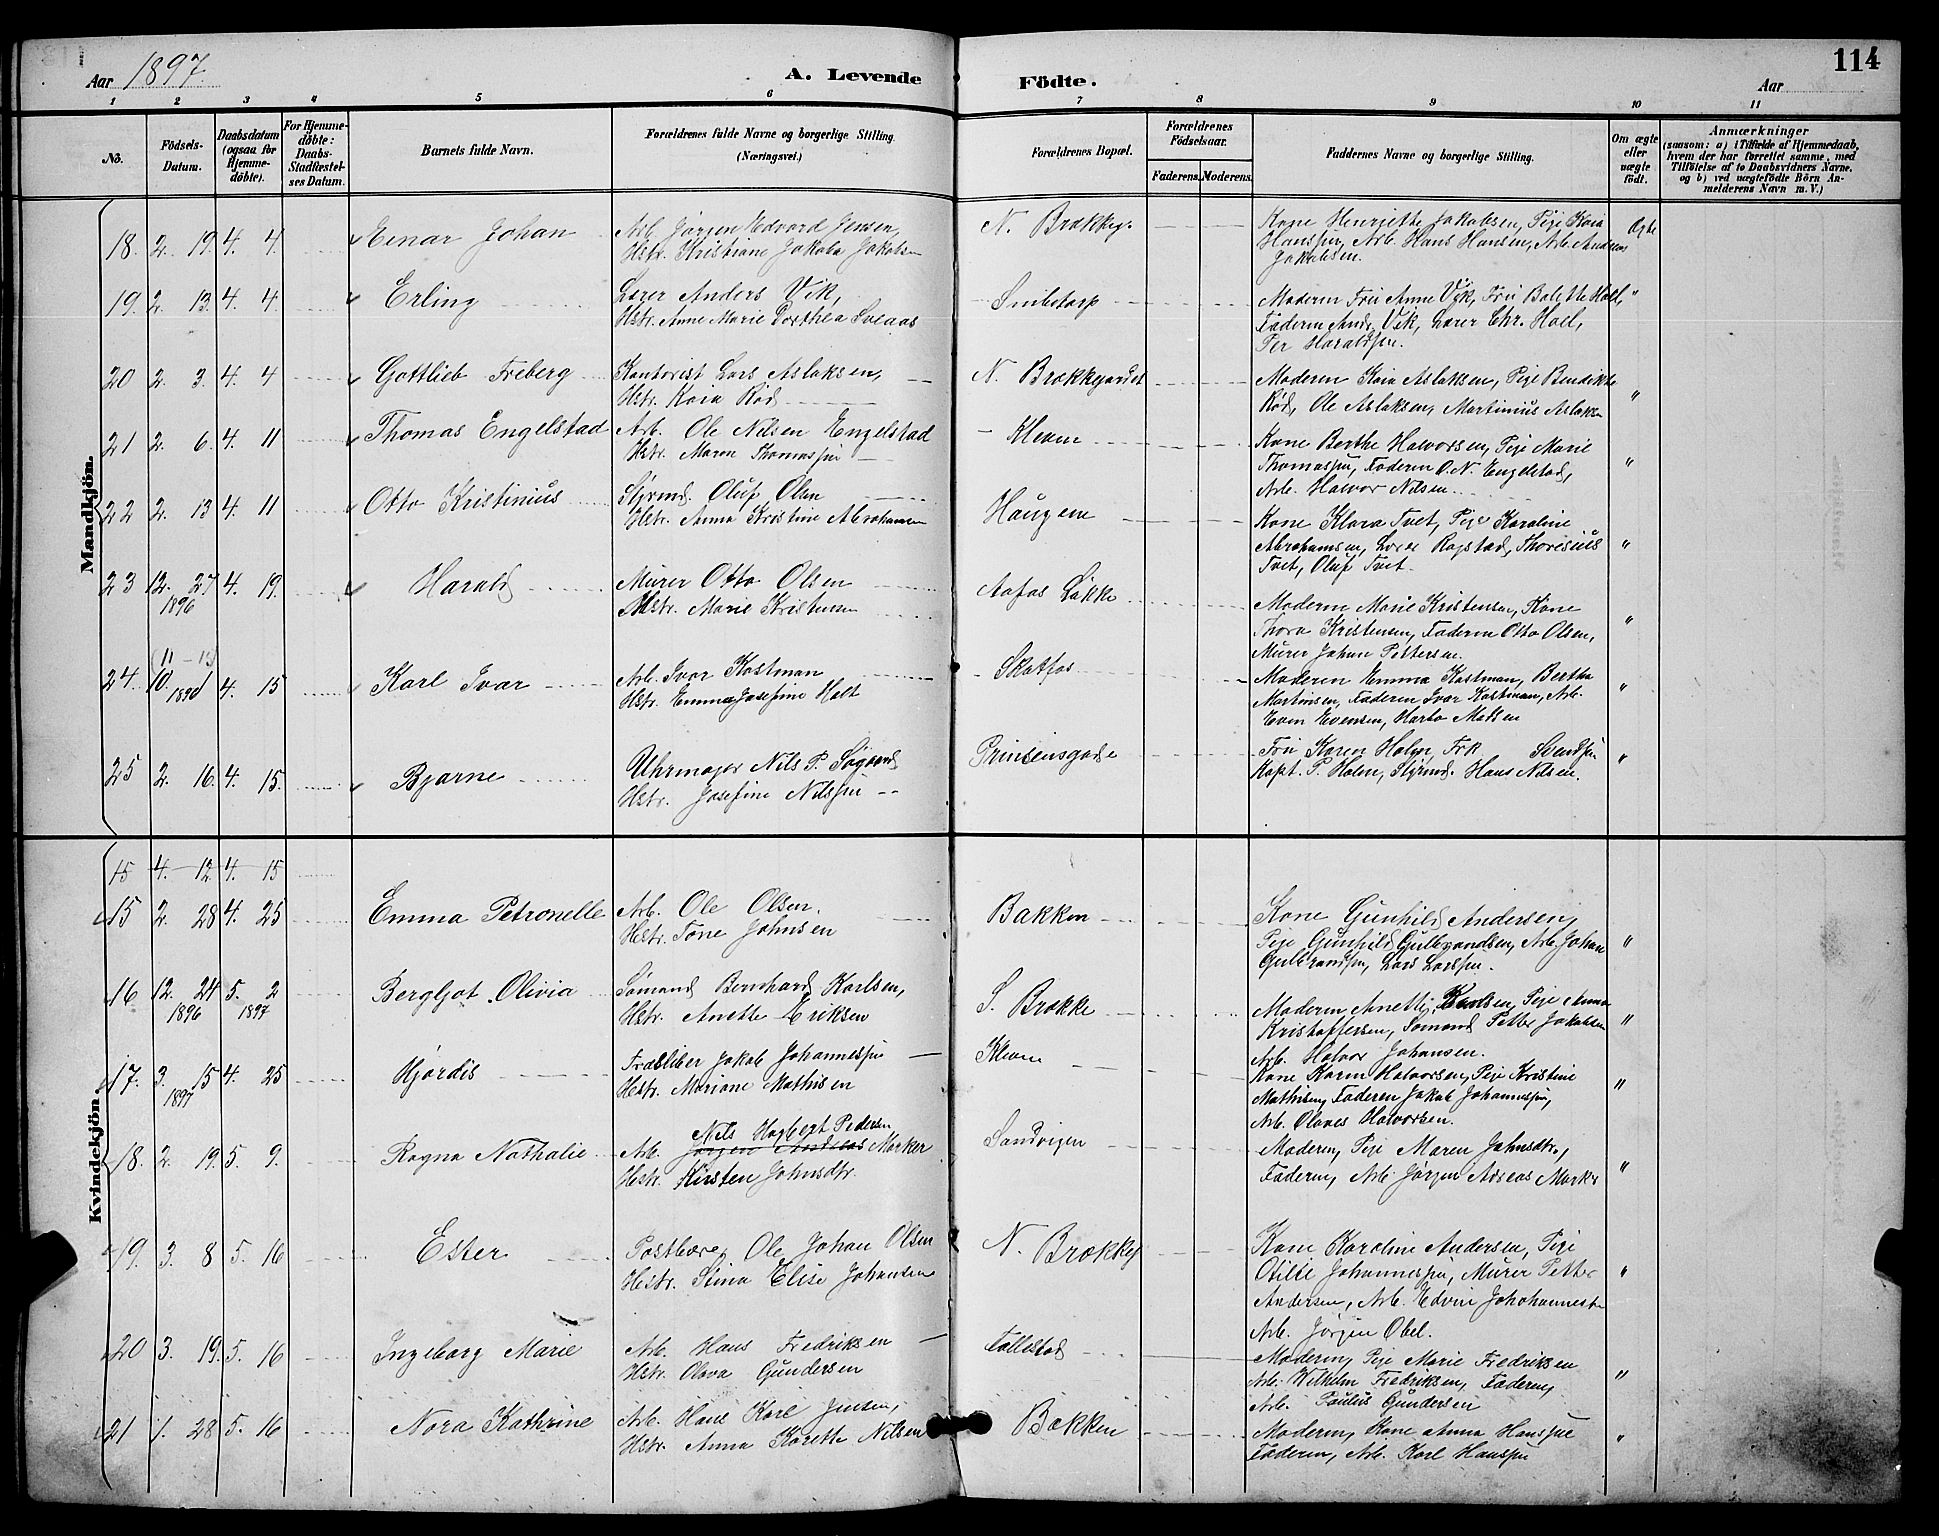 Aar 1897.
A. Levende Födte.
Aar
114
1 2 3 4 5 6 7 8 9 10 11
No.
Födsels-Datum.
Daabsdatum (ogsaa for Hjemme-döbte).
For Hjemme-döbte: Daabs-Stadfæstel-ses Datum.
Barnets fulde Navn.
Forældrenes fulde Navne og borgerlige Stilling. (Næringsvei.)
Forældrenes Bopæl.
Forældrenes Födselsaar.
Faderens. Moderens.
Faddernes Navne og borgerlige Stilling.
Om ægte eller uægte födt.
Anmærkninger
(saasom: a) i Tilfælde af Hjemmedaab, hvem der har forrettet samme, med Tilföielse af to Daabsvidners Navne, og b) ved uægtefödte Börn An-melderens Navn m. V.)
Mandkjön.
18. 2. 19. 4. 4. Einar Johan
Arb. Jørgen Edvard Jensen,
Hstr. Kristiane Jakoba Jakobsen
N. Brækkeg.
Kone Henriette Jakobsen, Pige Kaia
Hanssen, Arb. Hans Hansen, Arb. Andreas
Jakobsen.
Ægte
19. 2. 13. 4. 4. Erling
Lærer Anders Vik,
Hstr. Anne Marie Dorthea Sveaas
Smiestorp
Moderen Fru Anne Vik, Fru Bolette Holl,
Faderen And. Vik, Lærer Chr. Holl,
Per Haraldsen. "
20 2. 3. 4. 4 Gottlieb Freberg
Kontorist Lars Aslaksen,
Hstr. Kaia Rød
N. Brækkegaardet
Moderen Kaia Aslaksen, Pige Bendikte
Rød, Ole Aslaksen, Martinius Aslaksen "
21 2. 6. 4. 11 Thomas Engelstad
Arb. Ole Nilsen Engelstad
Hstr. Maren Thomassen
Kleven
Kone Berthe Halvorsen, Pige Marie
Thomassen, Faderen O. N. Engelstad,
Arb. Halvor Nilsen. "
22 2. 13 4. 11 Otto Kristinius
Styrmd. Oluf Olsen
Hstr. Anna Kristine Abrahamsen
Haugene
Kone Klara Tvet, Pige Karoline
Abrahamsen, Lærer Rogstad, Thovisius
Tvet, Oluf Tvet. "
23 12. 27 1896 4. 19. Harald
Murer Otto Olsen
Hstr. Marie Kristensen
Aafos Løkke
Moderen Marie Kristensen, Kone
Thora Kristensen, Faderen Otto Olsen,
Murer Johan Pettersen. "
24. 10. 1896 4. 15 Karl Ivar
Arb. Ivar Kastman
Hstr. Emma Josefine Holt
Skotfos
Moderen Emma Kastman, Bertha
Martinsen, Faderen Ivar Kastman, Arb.
Even Evensen, Marto Madsen "
25 2. 16. 4. 15. Bjarne
Uhrmager Nils P. Søgaard
Hstr. Josefine Nilssen
Prinsensgade
Fru Karen Holm, Frk. Svendsen
Kapt. P. Holm, Styrmd. Hans Nilsen. "
Kvindekjön.
15 4. 12. 4. 15
15 2. 28 4. 25 Emma Petronelle
Arb. Ole Olsen.
Hstr. Tone Johnsen
Bakken
Kone Gunhild Andersen,
Pige Gunhild Gulbrandsen, Arb. Johan
Gulbrandsen, Lars Larssen. "
16 12. 24 1896 5. 2 1897 Bergljot Olivia
Sømand Bernhard Karlsen,
Hstr. Anette Eriksen
S. Brække
Moderen Anette Karlsen, Pige Anna
Kristoffersen, Sømand Petter Jakobsen
Arb. Halvor Johansen. "
17. 3. 15 1897 4. 25 Hjørdis
Træsliber Jakob Johannessen
Hstr. Mariane Mathisen
Kleven
Kone Karen Halvorsen, Pige Kristine
Mathisen, Faderen Jakob Johannessen,
Arb. Olaves Halvorsen. "
18. 2. 19. 5. 9. Ragna Nathalie
Nils Hagbert Pedersen
Arb. Jørgen Andreas Marker
Hstr. Kirsten Johnsdtr.
Sandvigen
Moderen, Pige Maren Johnsdtr.,
Faderen, Arb. Jørgen Adreas Marker "
19. 3. 8 5. 16 Ester
Postbærer Ole Johan Olsen
Hstr. Stina Elise Johansen
N. Brækkeg
Kone Karoline Andersen, Pige
Otilie Johannessen, Murer Petter
Andersen, Arb. Edvin Johohannesen
Arb. Jørgen Obel. "
20 3. 19. 5. 16 Ingeborg Marie
Arb. Hans Fredriksen
Hstr. Olava Gundersen
Follestad
Moderen, Pige Marie Fredriksen
Arb. Wilhelm Fredriksen, Faderen,
Arb. Paulus Gundersen "
21 1. 28 5. 16 Nora Kathrine
Arb. Hans Karl Jensen,
Hstr. Anna Karette Nilsen
Bakken
Moderen, Kone Anna Hanssen
Faderen, Arb. Karl Hanssen "